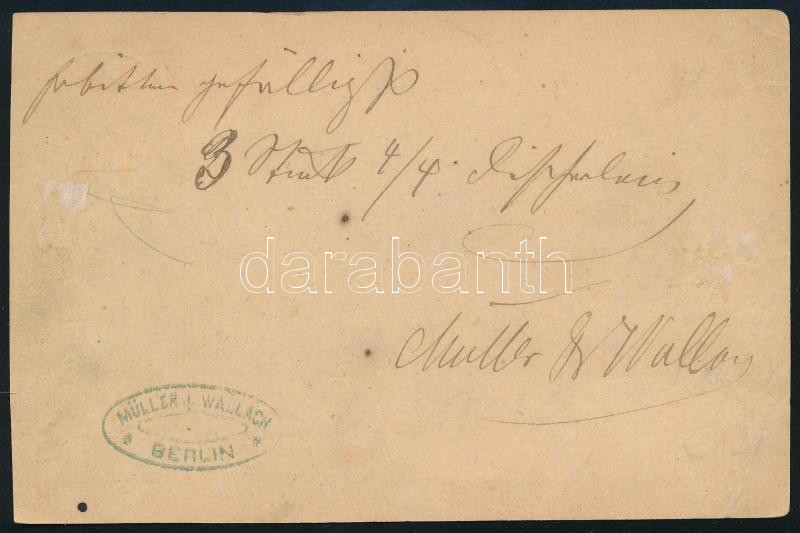 erbitten gefälligst
3 Stück 4/4
darabanth
Müller & Wallach
MÜLLER & WALLACH
BERLIN